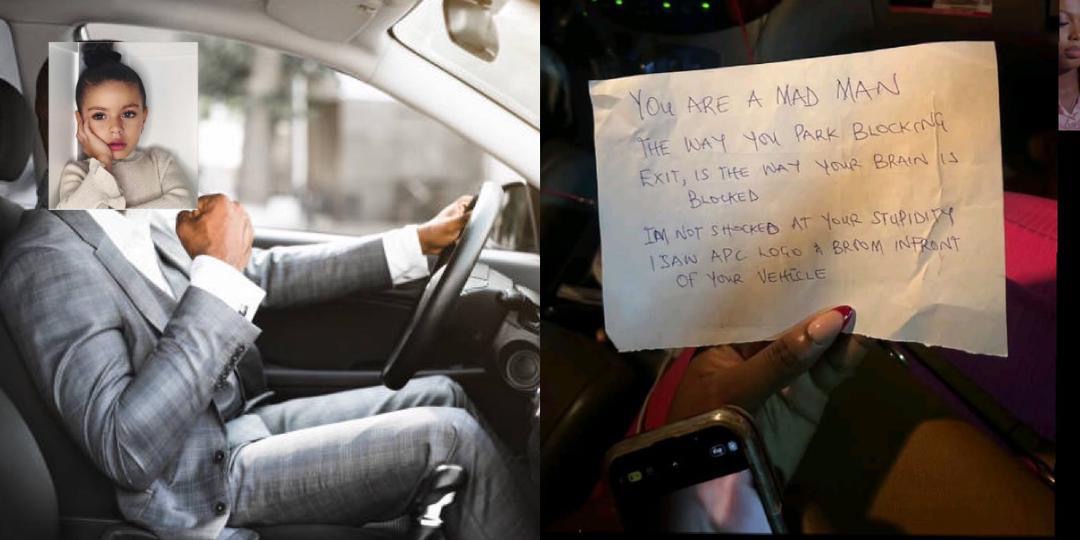 YOU ARE A MAD MAN
THE WAY YOU PARK BLOCKING
EXIT, IS THE WAY YOUR BRAIN IS
BLOCKED
IM NOT SHOCKED AT YOUR STUPIDITY
I SAW APC LOGO & BROOM INFRONT
OF YOUR VEHICLE